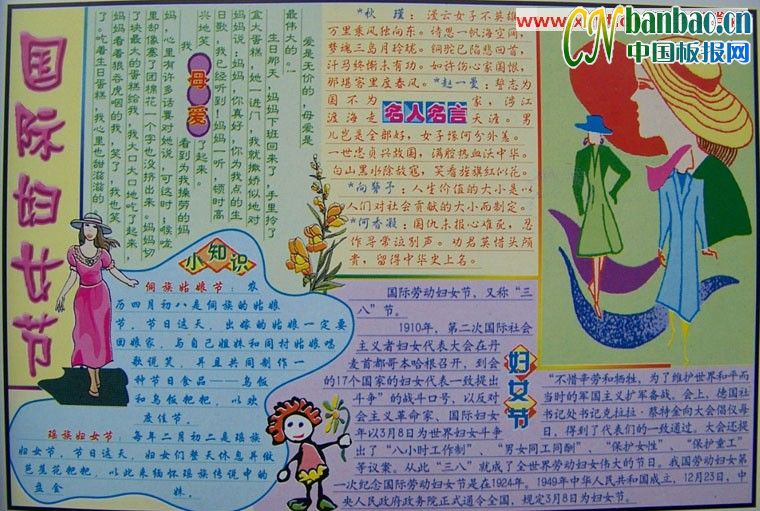 国际妇女节
母爱
爱是无价的，母爱是
最伟大的。"
生日那天，妈妈下班回来了，手里拎了
盒大蛋糕，她一进门，我就撒娇似地对
她说：妈妈，你真好，你为我点的生
我已经听到！妈妈一听，顿时高
兴地笑了起来。
我看到为我操劳的妈
妈，心里有许多话要对她说，可这时，喉咙
里却像塞了团棉花，一个字也没挤出来。妈妈切
了块最大的蛋糕给我，我大口大口地吃了起来，
妈妈看着狼吞虎咽的我，笑了，我也笑
了。吃着生日蛋糕，我心里也甜滋滋的
名人名言
*秋 瑾：漫云女子不英雄，
万里乘风独向东。诗思一帆海空阔，
梦魂三岛月玲珑。铜驼已陷悲回首，
汗马终惭未有功。如许伤心家国恨，
那堪客里度春风。*赵一曼：誓志为
国不为家，涉江
渡海走天涯。男
儿岂是全都好，女子缘何分外差。
一世忠贞兴故国，满腔热血沃中华。
白山黑水除敌寇，笑看旌旗红似花。
*向警予：人生价值的大小是以
人们对社会贡献的大小而制定。
*何香凝：国仇未报心难死，忍
作寻常泣别声。功君莫惜头颅
贵，留得中华史上名。
CNbanbao.cn
中国板报网
小知识
侗族姑娘节：农
历四月初八是侗族的姑娘
节，节日这天，出嫁的姑娘一定要
回娘家，与自己姐妹和同村姑娘唱
歌说笑，并且共同制作一
种节日食品——乌饭
和乌饭粑粑，以欢
度佳节。
瑶族妇女节：每年二月初二是瑶族
妇女节，节日这天，妇女们整天休息并做
芭蕉花粑粑，以此来缅怀瑶族传说中的
盘会妹。
妇女节
国际劳动妇女节，又称"三
八"节。
1910年，第二次国际社会
主义者妇女代表大会在丹
麦首都哥本哈根召开，到会
的17个国家的妇女代表一致提出
斗争"的战斗口号，以反对
会主义革命家、国际妇女
年以3月8日为世界妇女斗争
出了"八小时工作制"、"男女同工同酬"、"保护女性"、"保护童工"
等议案。从此"三八"就成了全世界劳动妇女伟大的节日。我国劳动妇女第
一次纪念国际劳动妇女节是在1924年。1949年中华人民共和国成立，12月23日，中
央人民政府政务院正式通令全国，规定3月8日为妇女节。
"不惜辛劳和牺牲，为了维护世界和平而
当时的军国主义扩军备战。会上，德国社
书记处书记克拉拉·蔡特金向大会倡仪每
日，得到了代表们的一致通过。大会还提